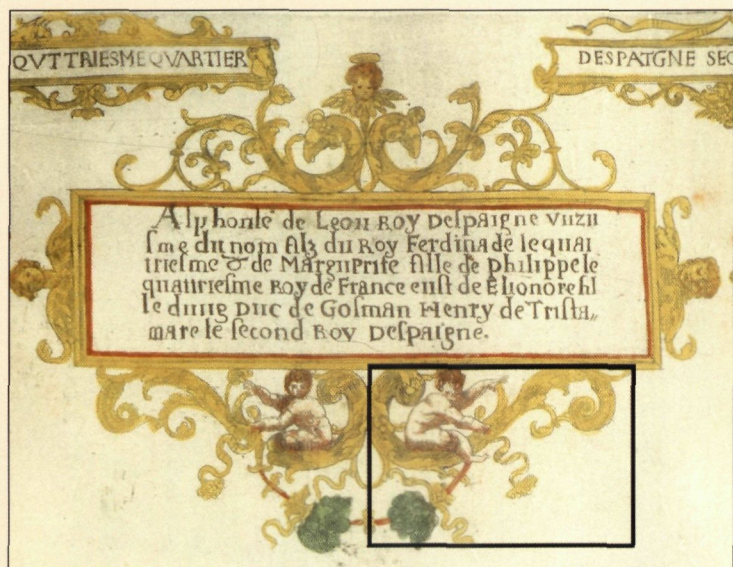 QVTTRIESMEQVARTIER
DESPATGNE SEC
Alphonse de Leon Roy Despaigne vnzii
sme du nom filz du Roy Ferdinãde le quat
triesme & de Marguerite fille de Philippe le
quatriesme Roy de France eust de Elionore fil
le dung Duc de Gosman Henry de Trista„
mare le second Roy Despaigne.